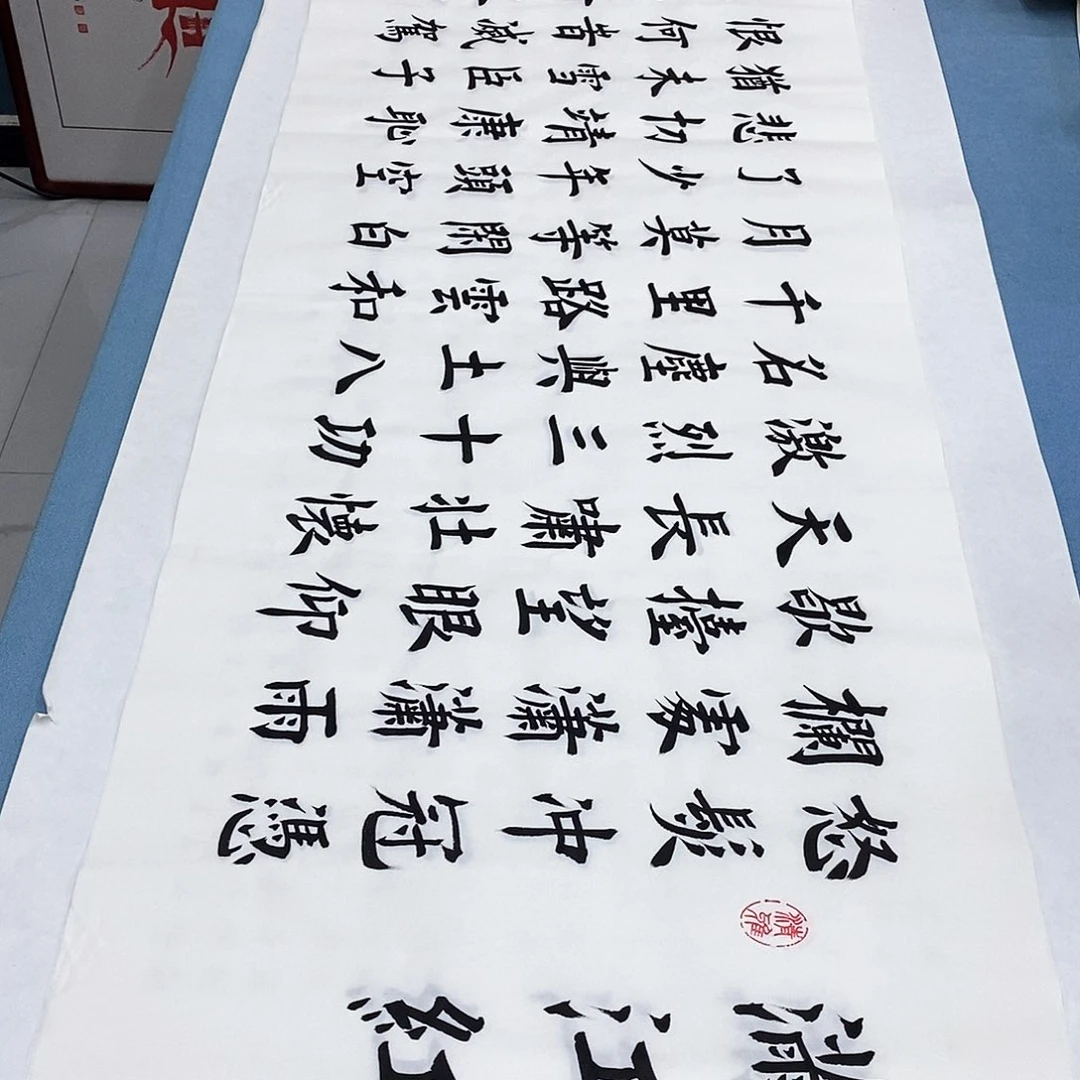 滿江紅
清雅
怒髮沖冠憑
欄處瀟瀟雨
歇擡望眼仰
天長嘯壯懷
激烈三十功
名塵與土八
千里路雲和
月莫等閑白
了少年頭空
悲切靖康恥
猶未雪臣子
恨何昔滅駕